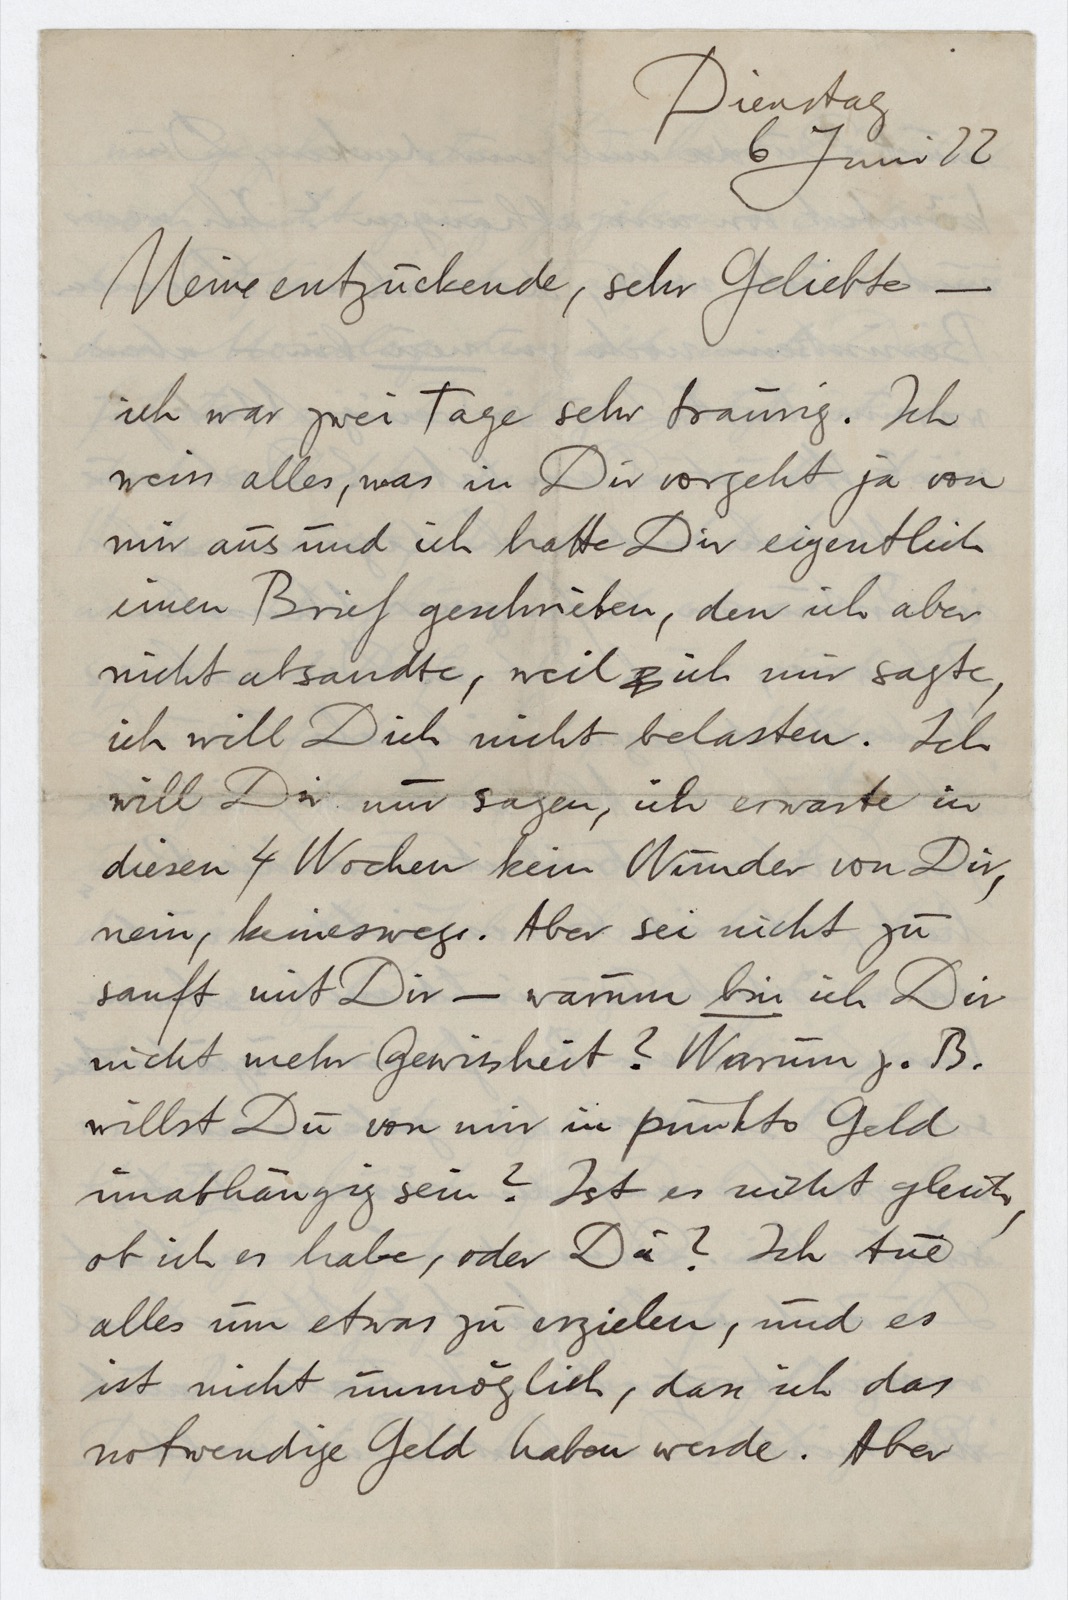 Dienstag
6 Juni 22
Meine entzückende, sehr Geliebte —
ich war zwei Tage sehr traurig. Ich
weiss alles, was in Dir vorgeht ja von
mir aus und ich hatte Dir eigentlich
einen Brief geschrieben, den ich aber
nicht absandte, weil ich mir sagte,
ich will Dich nicht belasten. Ich
will Dir nur sagen, ich erwarte in
diesen 4 Wochen kein Wunder von Dir,
nein, keineswegs. Aber sei nicht zu
sanft mit Dir — warum bin ich Dir
nicht mehr Gewissheit? Warum z. B.
willst Du von mir in punkto Geld
unabhängig sein? Ist es nicht gleich,
ob ich es habe, oder Du? Ich tue
alles um etwas zu erzielen, und es
ist nicht unmöglich, dass ich das
notwendige Geld haben werde. Aber